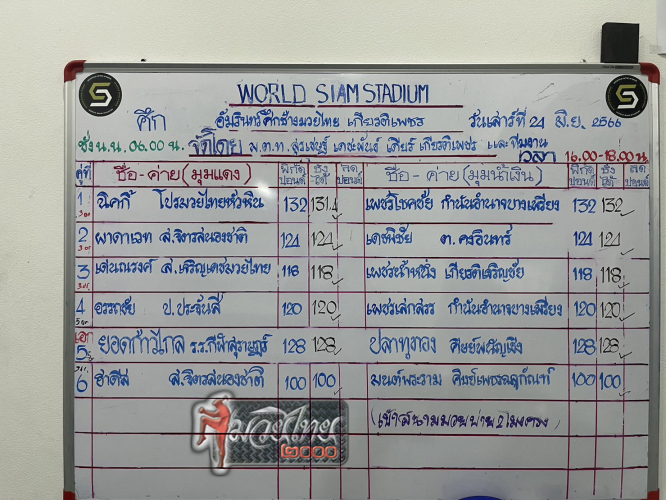 WORLD SIAM STADIUM
ศึก อัมรินทร์ศึกช้างมวยไทย เกียรติเพชร วันเสาร์ที่ 24 มิ.ย. 2566
ชั่ง น.น. 06.00 น. จัดโดย พ.ต.ท. สุรเชษฐ์ เตชะพันธ์ เสี่ยร์ เกียรติเพชร และทีมงาน
เวลา 16.00-18.00 น.
คู่ที่ ชื่อ-ค่าย (มุมแดง) พิกัด ปอนด์ ชั่งได้ ลด ปอนด์ ชื่อ-ค่าย (มุมน้ำเงิน) พิกัด ปอนด์ ชั่งได้ ลด ปอนด์
1 นิคกี้ โปรมวยไทยหัวหิน 132 131.4 เพชรโชคชัย กำนันอำนาจบางเหรียง 132 132
2 ส.จิตรสนองชาติ 124 124 เดชพิชัย ต.คงอินทร์ 124 124
3 เด่นณรงค์ ส.เจริญเดชมวยไทย 118 118 เพชรน้ำหนึ่ง เกียรติเจริญชัย 118 118
4 อรรถชัย ป.ประจันสี 120 120 เพชรเล็กสรร กำนันอำนาจบางเหรียง 120 120
เอก
5 ยอดก้าวไกล ร.ร.กีฬาสุราษฎร์ 128 128 ปลาทูทอง 128 128
6 ฮาดีส ส.จิตรสนองชาติ 100 100 มนต์พระราม 100 100
(เข้าสนามมวยบ่าย 2 โมงตรง)
มวยไทย
๒๐๐๐